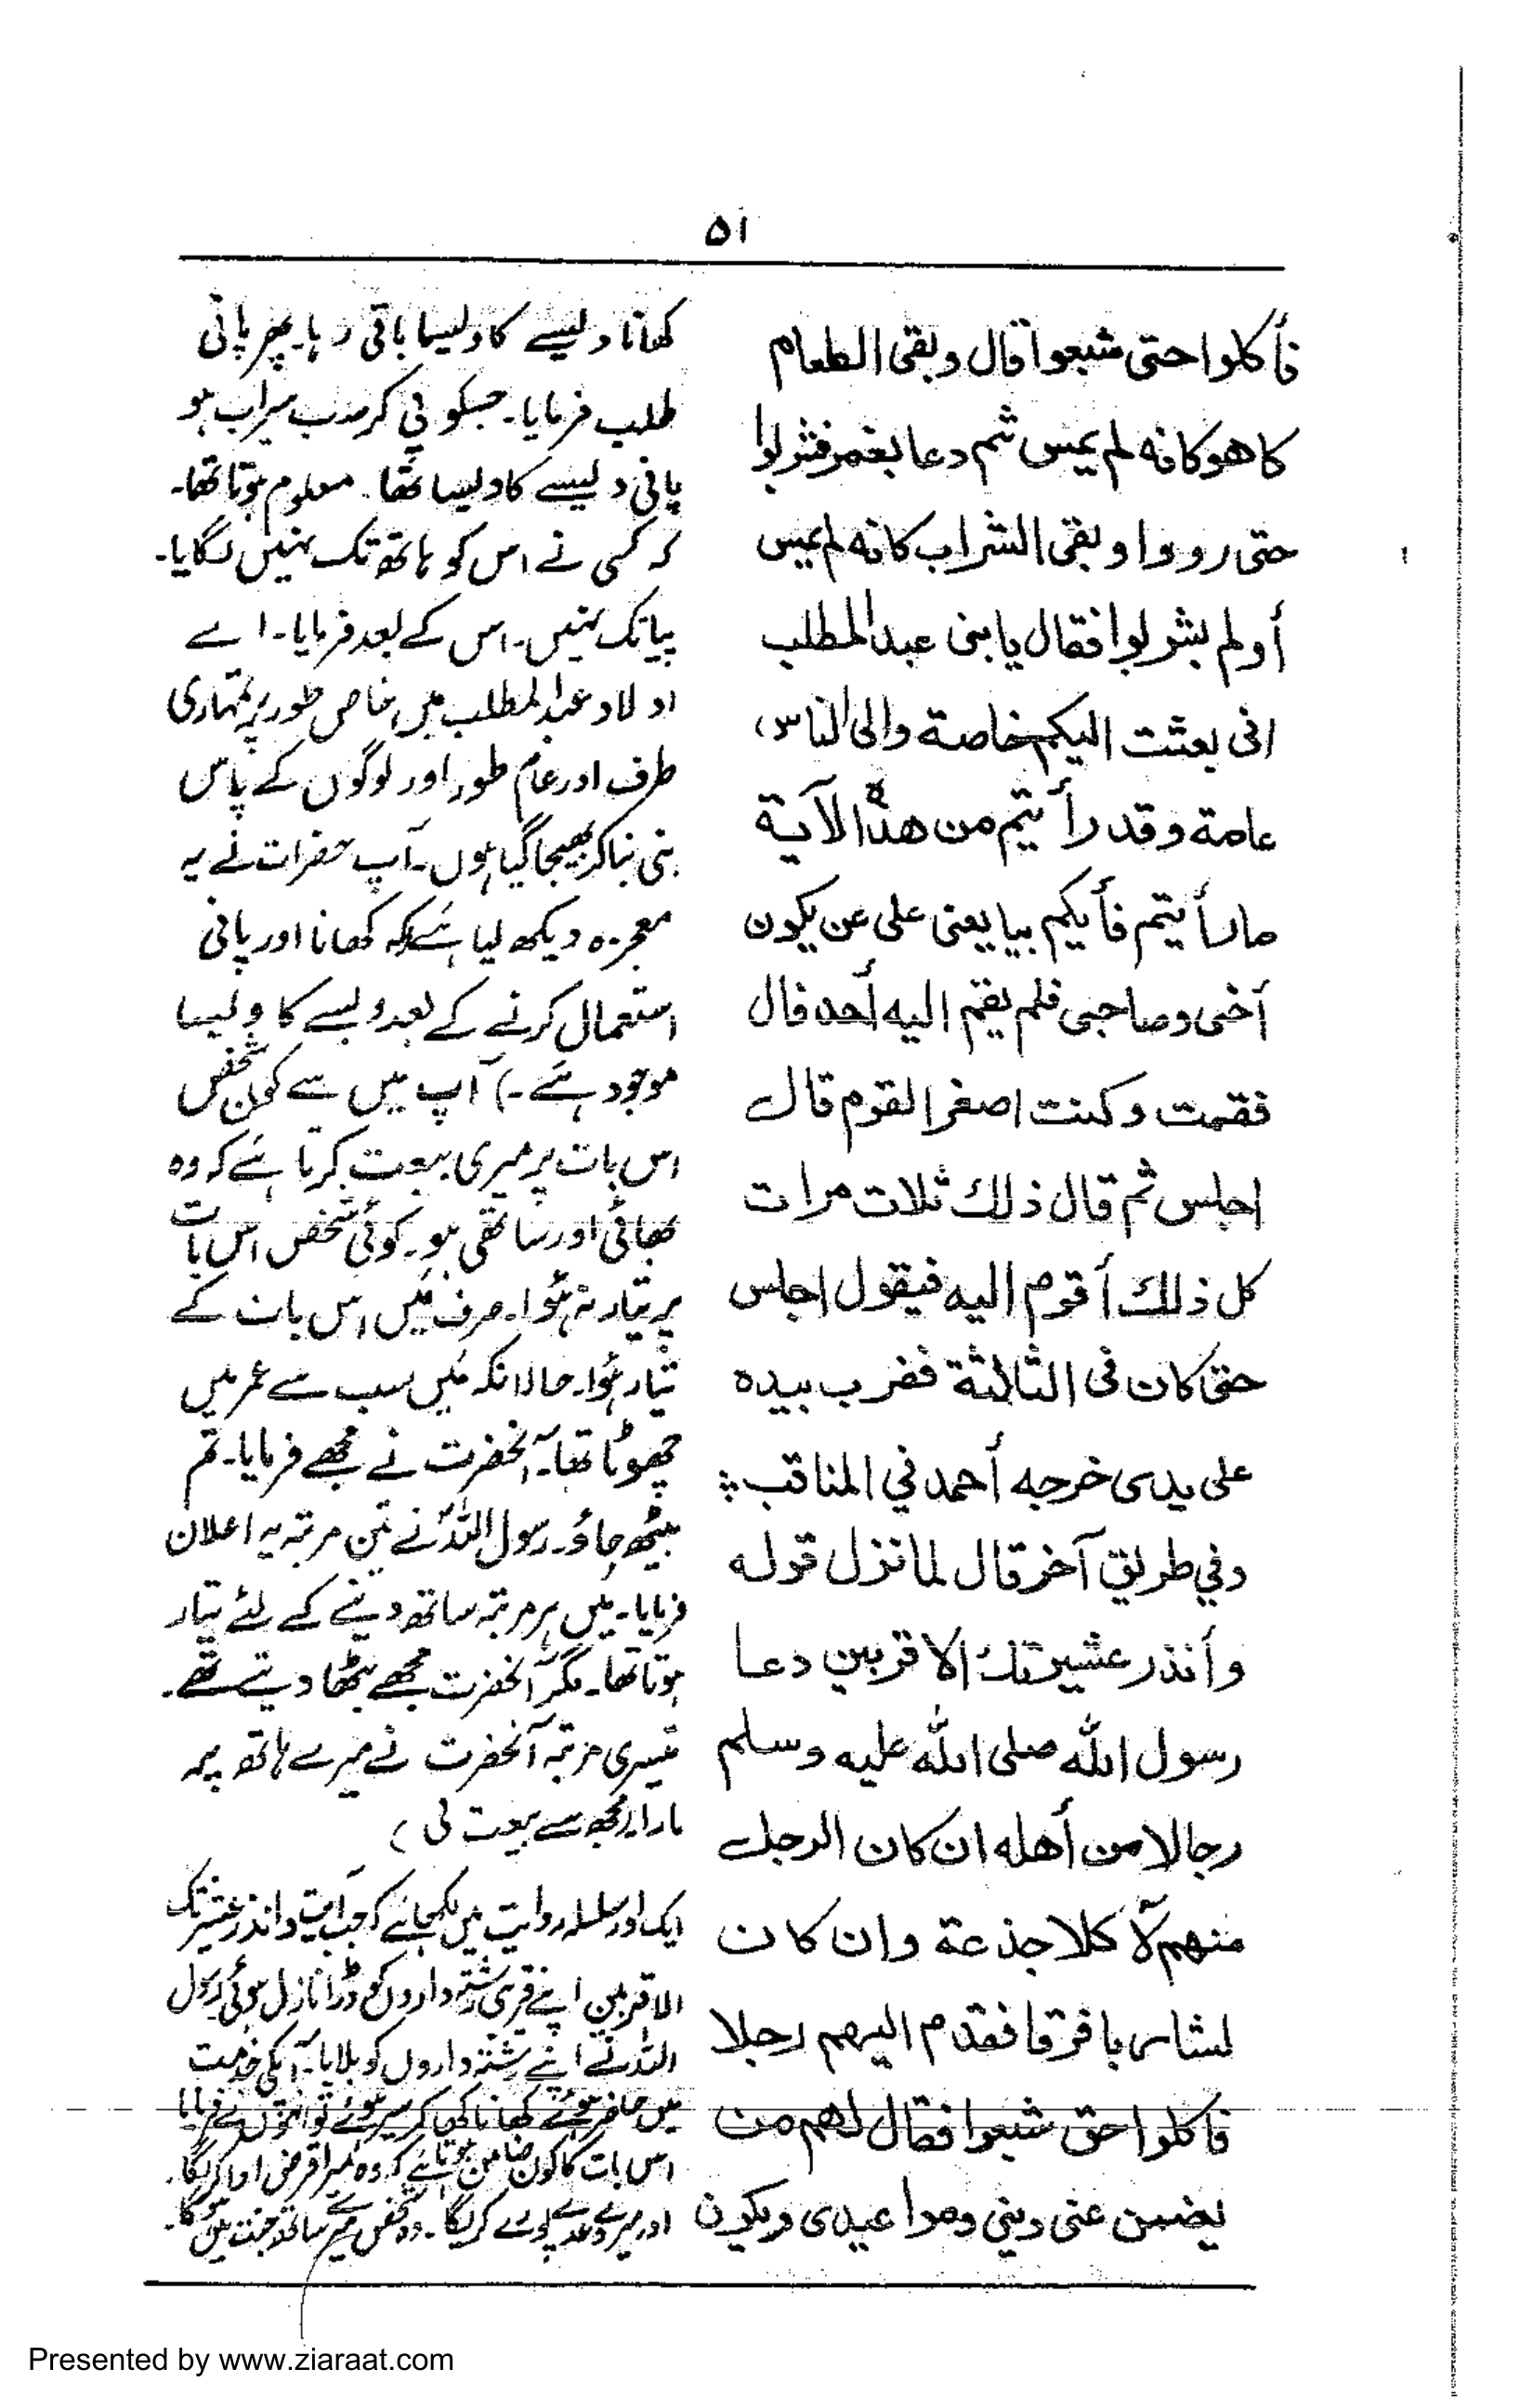 ۵۱
فأكلوا حتى شبعوا قال وبقى الطعام
كاهوكانه لم يمس ثم دعا بغمر فشربوا
حتى رووا وبقى الشراب كانه لم يمس
أولم يشربوا فقال يا بنى عبد المطلب
انى بعثت اليكم خاصة والى الناس
عامة وقد رأيتم من هذه الآية
ما رأيتم فأيكم يبا يعنى على عن يكون
أخى وصاحبى فلم يقم اليه أحد قال
فقمت وكنت اصغر القوم قال
اجلس ثم قال ذلك ثلاث مرات
كل ذلك أقوم اليه فيقول اجلس
حتى كان فى الثالثة فضرب بيده
على يدى خرجه أحمد في المناقب
وفي طريق آخر قال لما نزل قوله
وأنذر عشيرتك الاقربين دعا
رسول الله صلى الله عليه وسلم
رجالا من أهله ان كان الرجل
منهم لآ كلا جذعة وان كان
لشاربا فرقا فقدم اليهم رجلا
فأكلوا حتى شبعوا فقال لهم من
يضمن عنى دينى ومواعيدى ويكون
کھانا ویسے کا ویسا باقی رہا۔ پھر پانی
طلب فرمایا۔ جسکو پی کر سب سیراب ہو
پانی ویسے کا ویسا تھا۔ معلوم ہوتا تھا۔
کہ کسی نے اس کو ہاتھ تک نہیں لگایا۔
پیا تک نہیں۔ اس کے بعد فرمایا۔ اے
اولاد عبدالمطلب میں خاص طور پر تمہاری
طرف اور عام طور اور لوگوں کے پاس
نبی بنا کر بھیجا گیا ہوں۔ آپ حضرات نے یہ
معجزہ دیکھ لیا ہے کہ کھانا اور پانی
استعمال کرنے کے بعد ویسے کا ویسا
موجود ہے۔) آپ میں سے کون شخص
اس بات پر میری بیعت کرتا ہے کہ وہ
بھائی اور ساتھی ہو۔ کوئی شخص اس بات
پر تیار نہ ہوا۔ صرف میں اس بات کے
تیار ہوا۔ حالانکہ میں سب سے عمر میں
چھوٹا تھا۔ آنحضرت نے مجھے فرمایا۔ تم
بیٹھ جاؤ۔ رسول اللہؐ نے تین مرتبہ یہ اعلان
فرمایا۔ میں ہر مرتبہ ساتھ دینے کے لئے تیار
ہوتا تھا۔ مگر آنحضرت مجھے بٹھا دیتے تھے۔
تیسری مرتبہ آنحضرت نے میرے ہاتھ پر
مارا (مجھ سے بیعت لی)
ایک اور سلسلہ روایت میں لکھا ہے کہ جب آیت وانذر عشیرتک
الاقربین اپنے قریبی رشتہ داروں کو ڈرا نازل ہوئی رسول
اللہ نے اپنے رشتہ داروں کو بلایا۔ آپکی خدمت
میں حاضر ہوئے کھانا کھا کر سیر ہوئے تو انہوں نے فرمایا
اس بات کا کون ضامن ہوتا ہے کہ وہ میرا قرض ادا کریگا۔
اور میرے وعدے پورے کریگا۔ وہ شخص میرے ساتھ جنت میں ہوگا۔
Presented by www.ziaraat.com